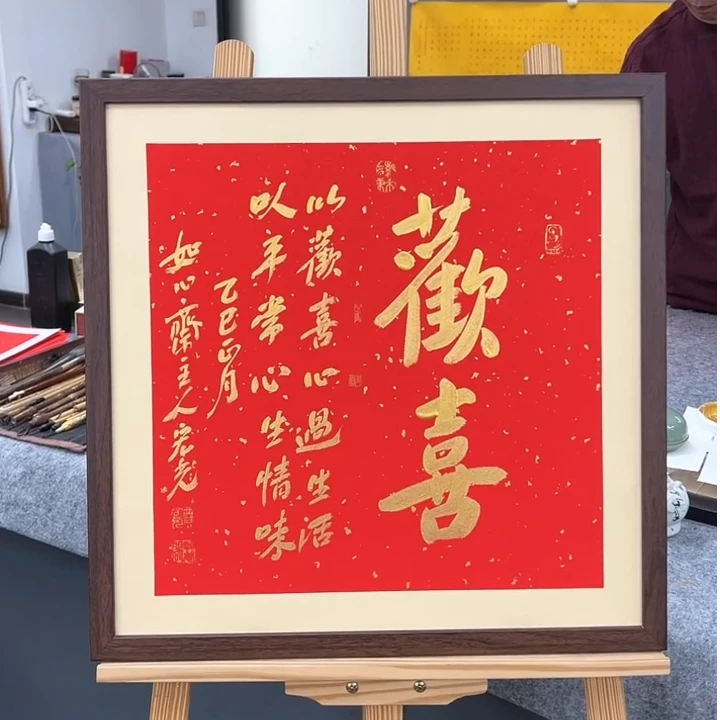 歡喜
以歡喜心過生活
以平常心生情味
乙巳正月
如心齋主人宏老